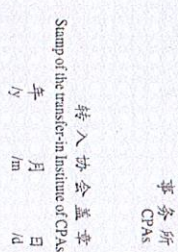 事务所
CPAs
转入协会盖章
Stamp of the transfer-in Institute of CPAs
年 月 日
/y /m /d